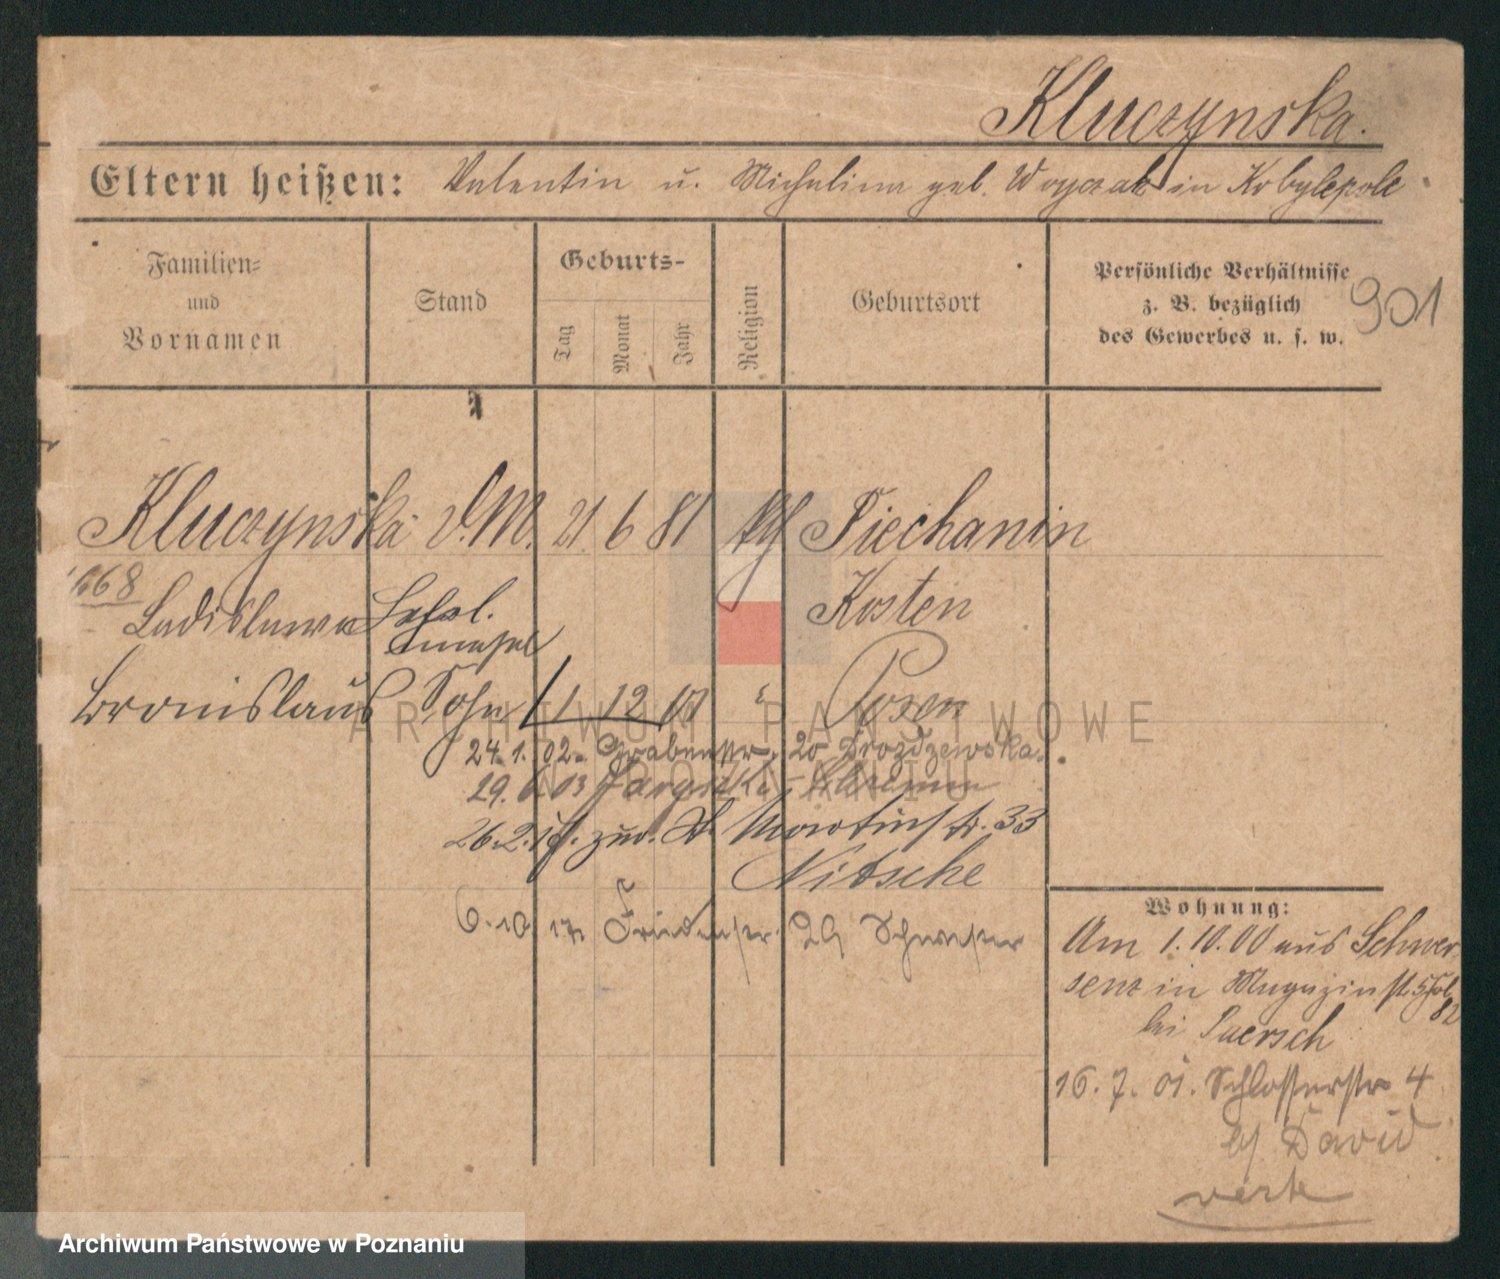 Kluczynska.
Eltern heißen: Valentin u. Michalina geb. Woyczak in Kobylepole
Familien= und Vornamen
Stand
Geburts-
Tag
Monat
Jahr
Religion
Geburtsort
Persönliche Verhältnisse
z. B. bezüglich
des Gewerbes u. s. w.
901
Kluczynska d.M. 21 6 81 kth Piechanin
168
Ladislawa Kosten
Bronislaus Sohn 1 12 01 " Posen
24.1.02. Grabenstr. 20 Drozdzewska.
29. 6 03
26.2. zur. St. Martinstr. 33
Nitsche
6.10 17 29
Wohnung:
Am 1.10.00 aus Schwer-
senz in Magazinstr. 5
82
bei Paersch
16.7.01. Schlosserstr 4
bei David
verte
ARCHIWUM PAŃSTWOWE
W POZNANIU
Archiwum Państwowe w Poznaniu